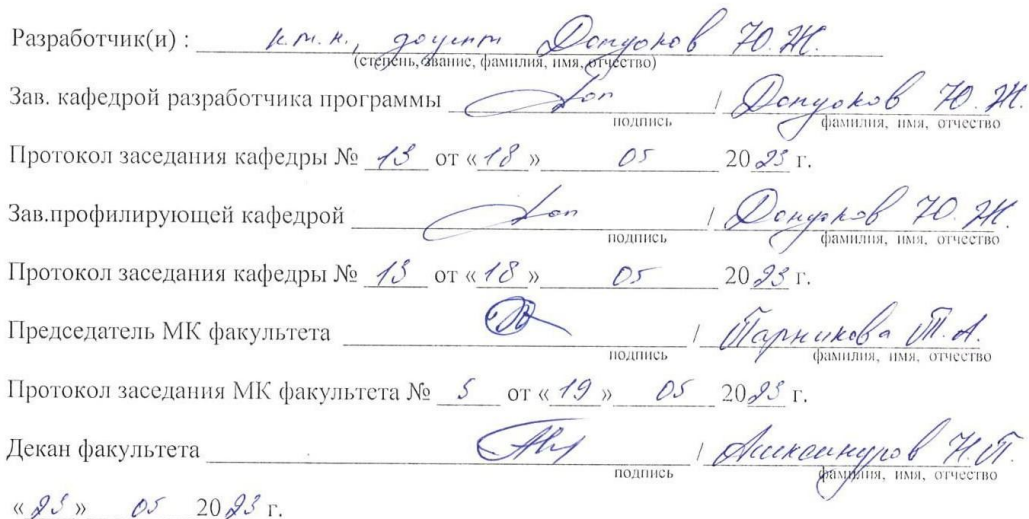 Разработчик(и) : к.т.н., доцент Допуоков Ю.Ж.
(степень, звание, фамилия, имя, отчество)
Зав. кафедрой разработчика программы / Ю.Ж.
подпись фамилия, имя, отчество
Протокол заседания кафедры № 13 от «18» 05 2023 г.
Зав.профилирующей кафедрой / Ю.Ж.
подпись фамилия, имя, отчество
Протокол заседания кафедры № 13 от «18» 05 2023 г.
Председатель МК факультета / Парникова Т.А.
подпись фамилия, имя, отчество
Протокол заседания МК факультета № 5 от «19» 05 2023 г.
Декан факультета / Н.П.
подпись фамилия, имя, отчество
«23» 05 2023 г.